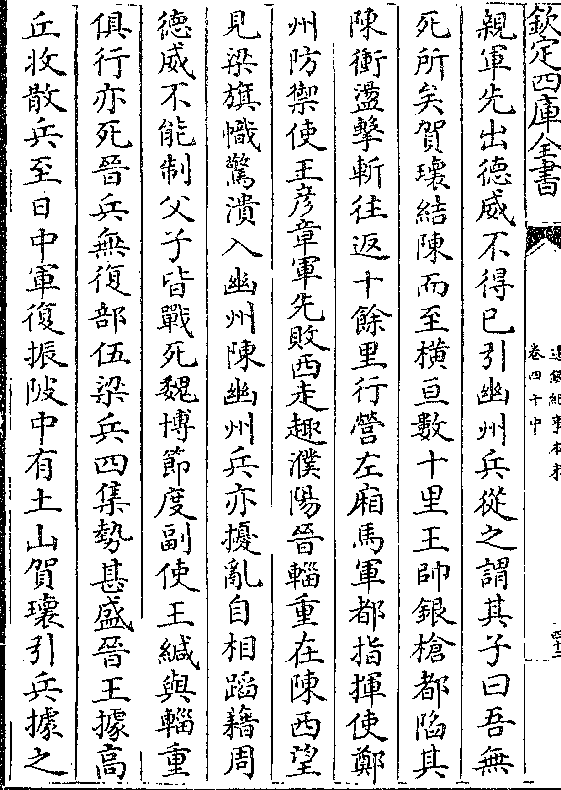 欽定四庫全書
通鑑紀事本末
卷四十中
親軍先出德威不得已引幽州兵從之謂其子曰吾無
死所矣賀瓌結陳而至橫亘數十里王帥銀槍都陷其
陳衝盪擊斬往返十餘里行營左廂馬軍都指揮使鄭
州防禦使王彦章軍先敗西走趣濮陽晉輜重在陳西望
見梁旗幟驚潰入幽州陳幽州兵亦擾亂自相蹈藉周
德威不能制父子皆戰死魏博節度副使王緘與輜重
俱行亦死晉兵無復部伍梁兵四集勢甚盛晉王據高
丘收散兵至日中軍復振陂中有土山賀瓌引兵據之